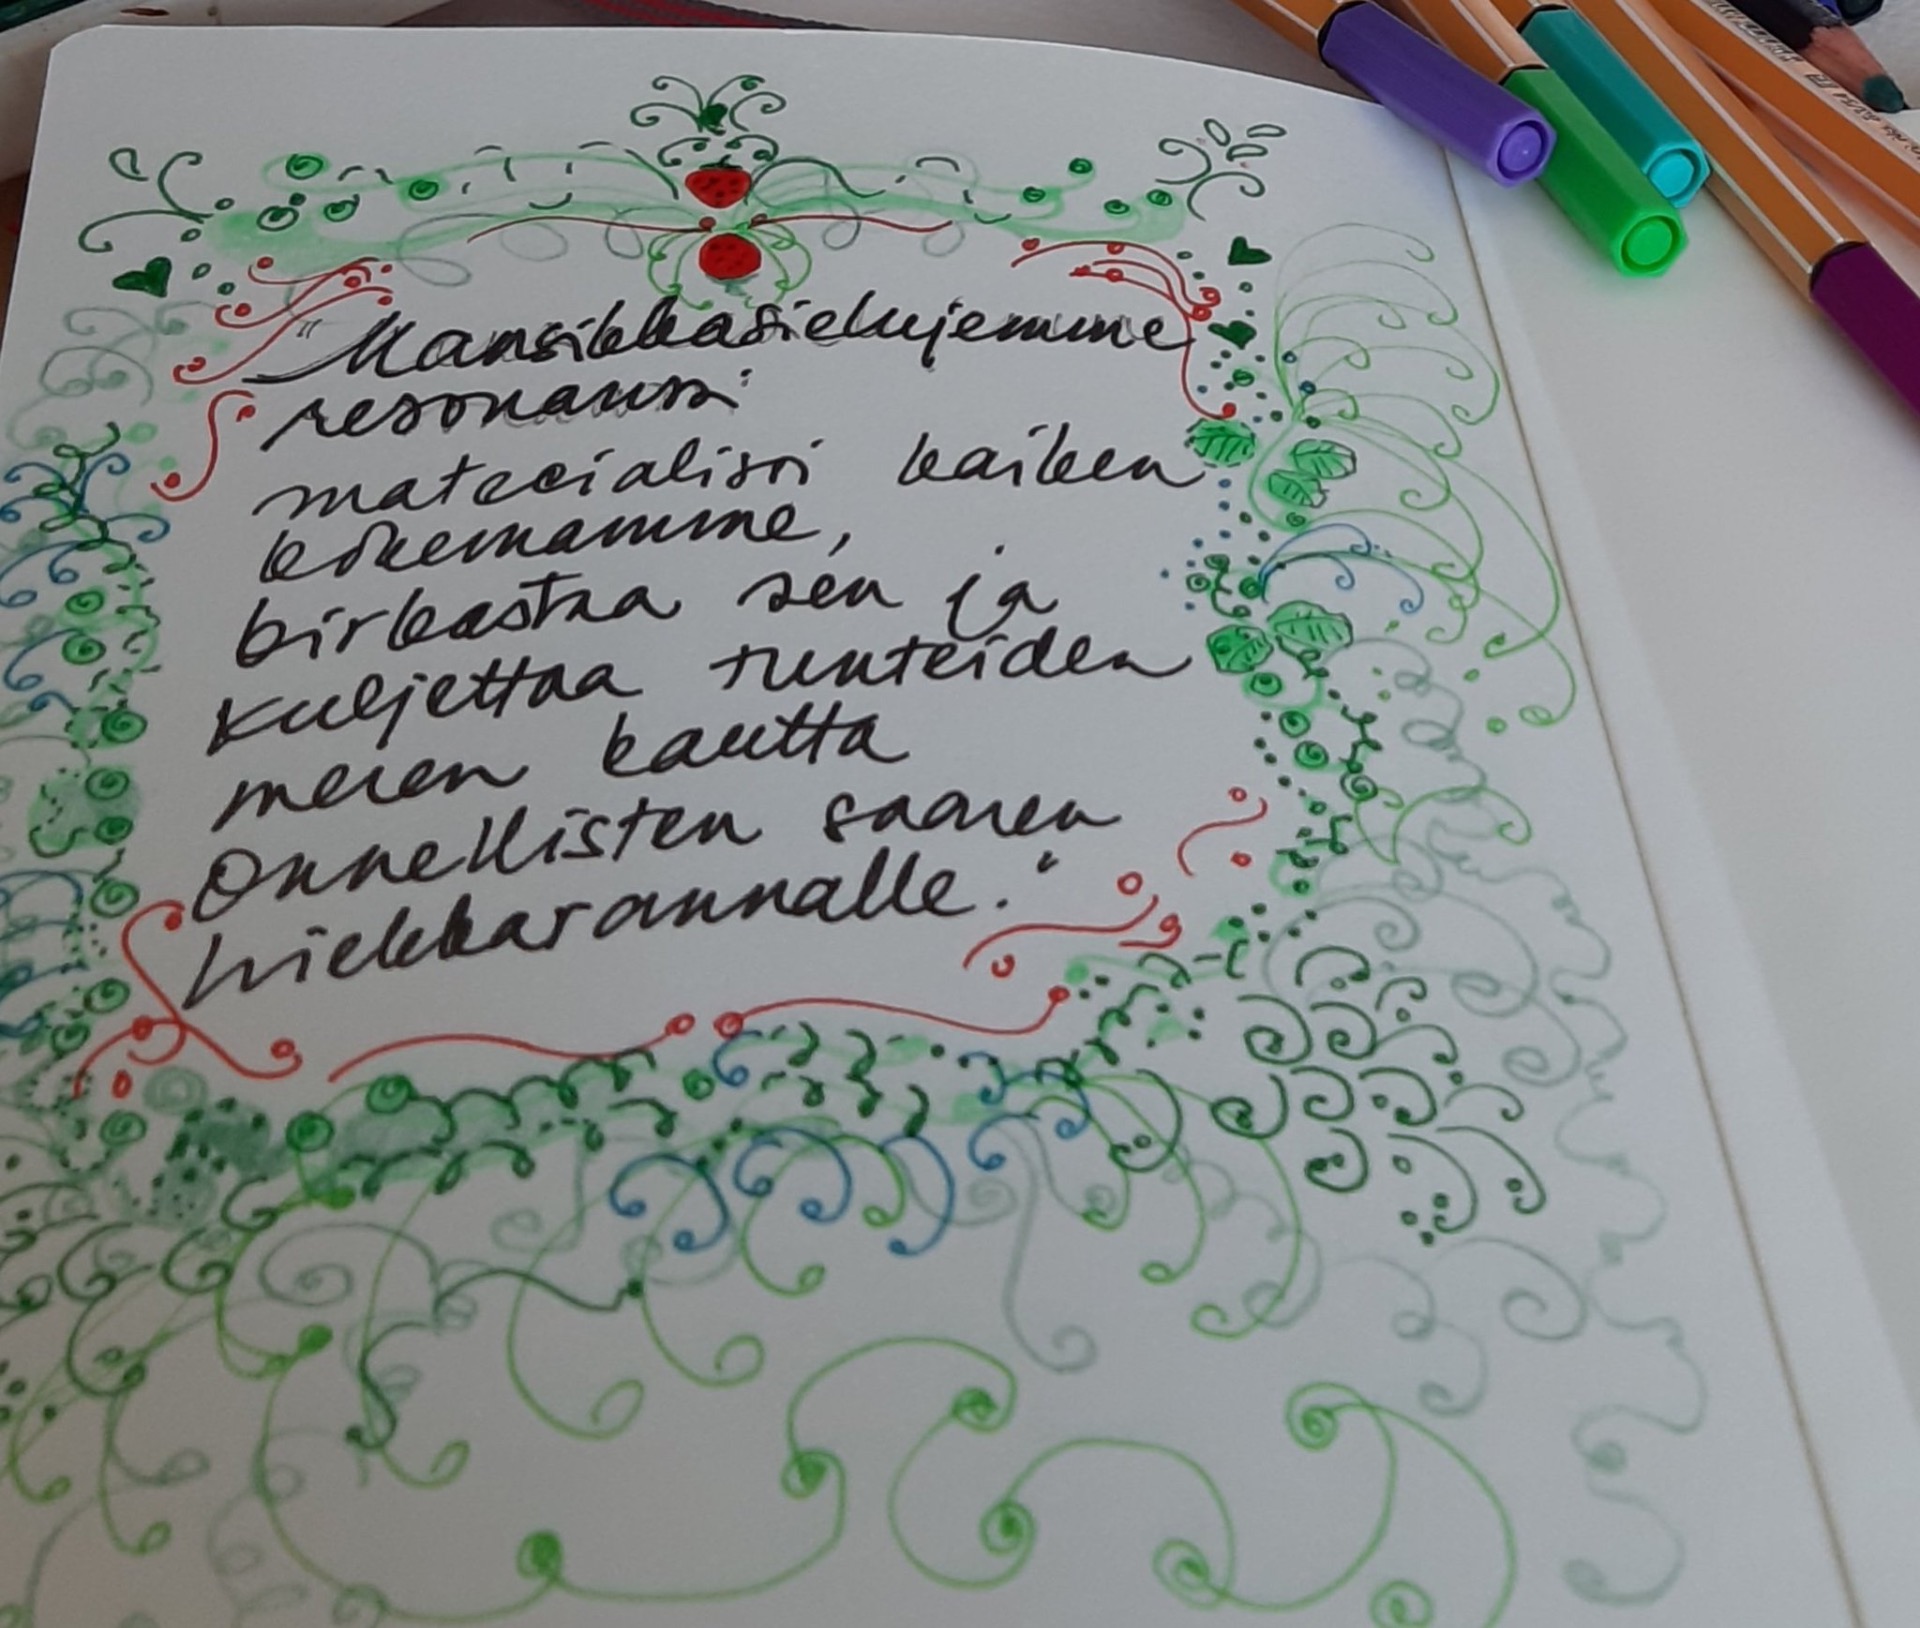 "Mansikkasielujemme
resonanssi
materialisoi kaiken
kokemamme,
kirkastaa sen ja
kuljettaa tunteiden
meren kautta
Onnellisten saaren
hiekkarannalle."